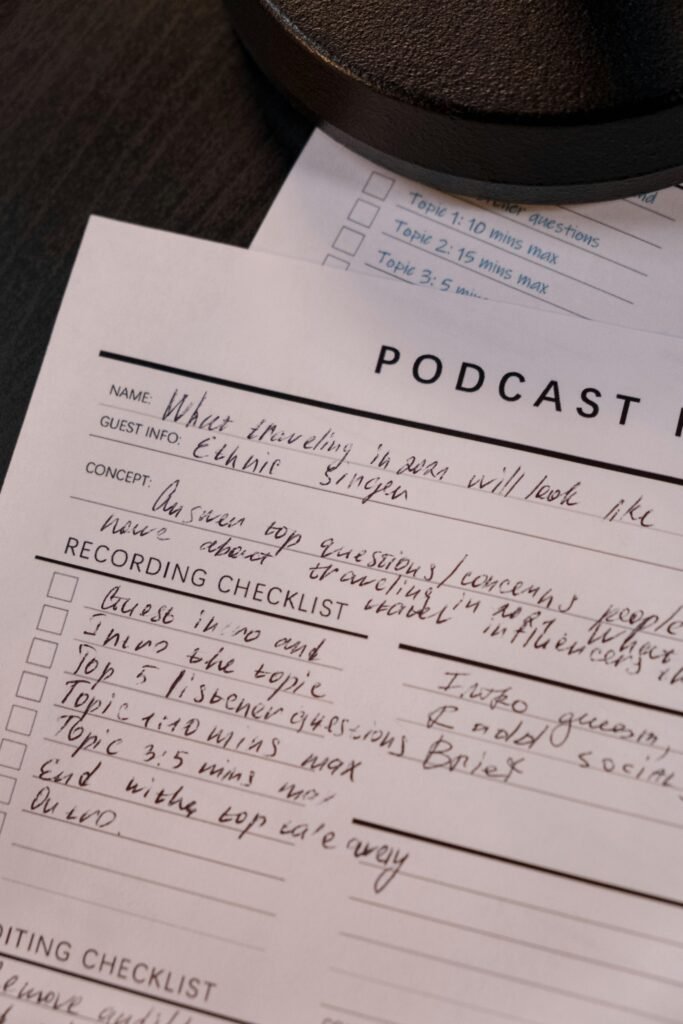 questions
Topic 1: 10 mins max
Topic 2: 15 mins max
Topic 3: 5
PODCAST
NAME: What traveling in 2021 will look like
GUEST INFO: Ethnie Singen
CONCEPT: Answer top questions/concerns people
have about traveling in 2021 What
travel influencers
RECORDING CHECKLIST
Guest intro and
Intro the topic
Top 5 listener questions
Topic 1:10 mins max
Topic 3:5 mins max
End with a top
Outro.
Intro
& add social
Brief
EDITING CHECKLIST